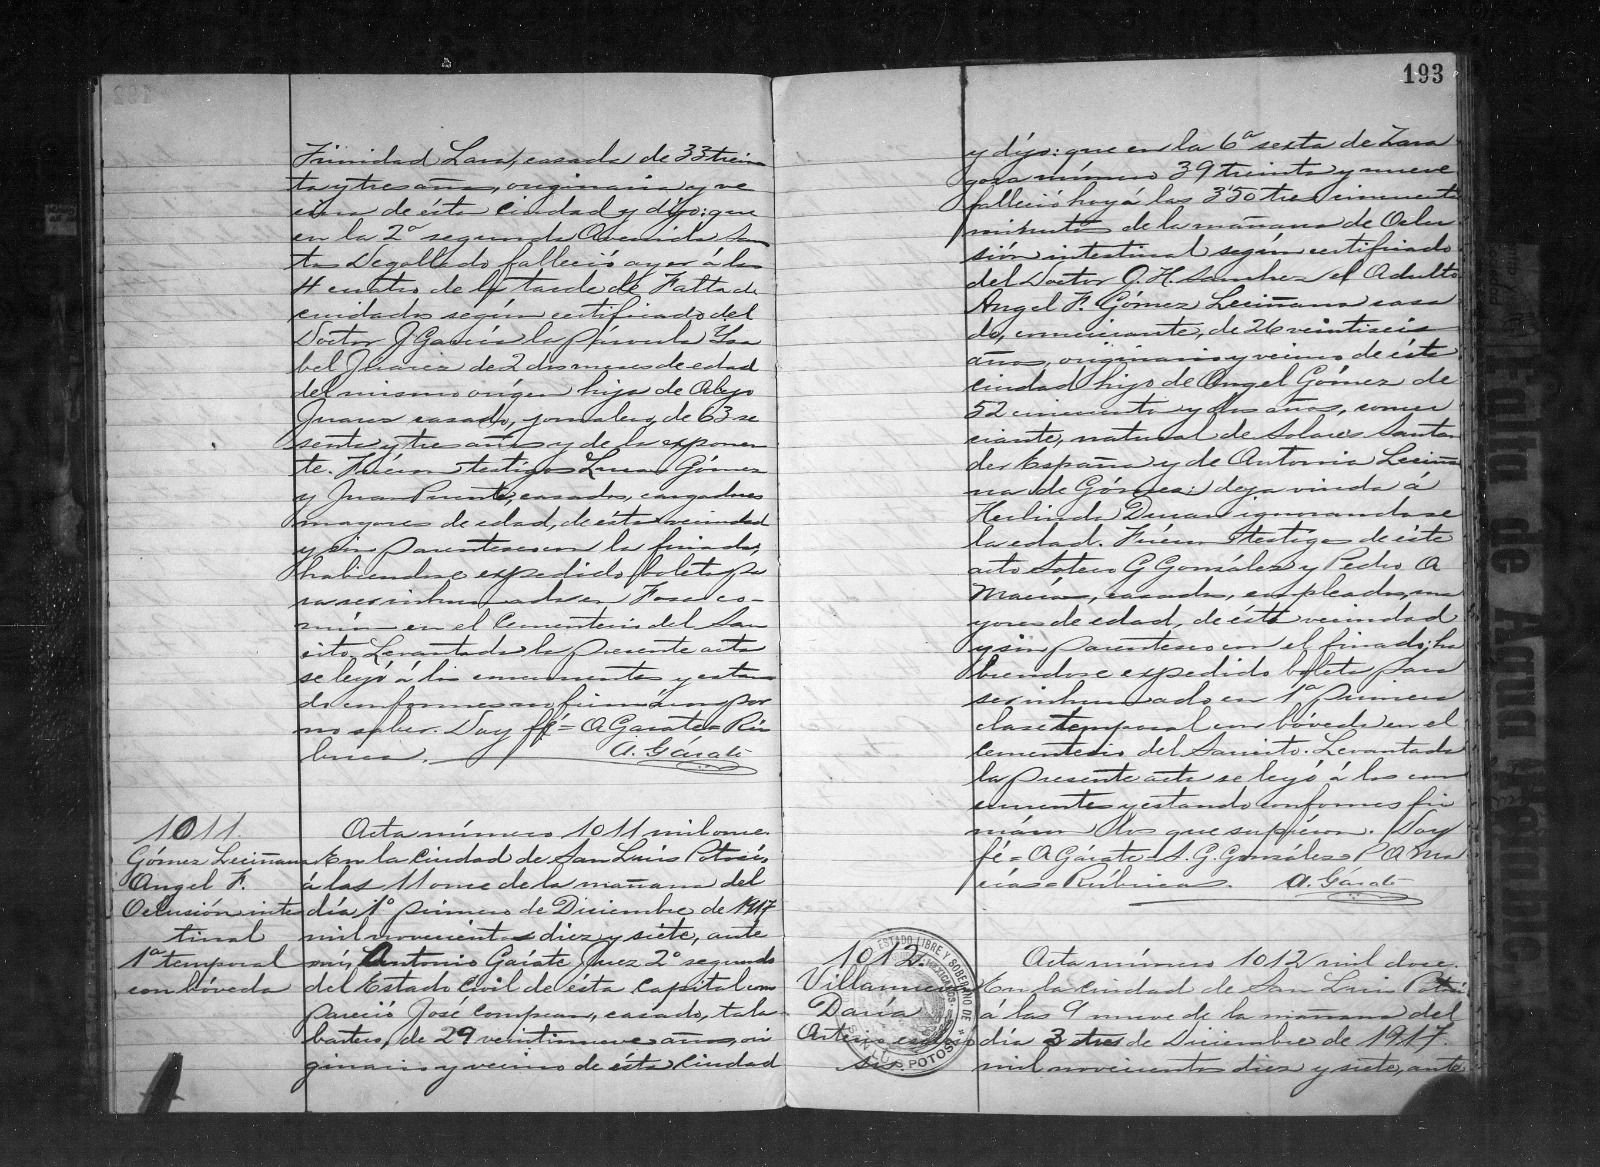 Trinidad Lara, casada de 33 trein
ta y tres años, originaria y ve
cina de ésta Ciudad y dijo: que
en la 2ª segunda Avenida San
tos Degollado falleció ayer á las
4 cuatro de la tarde de Falta de
cuidados según certificado del
Doctor J García la párvula Isa
bel Juarez de 2 dos meses de edad
del mismo orígen hija de Alejo
Juarez casado, jornalero, de 63 se
senta y tres años y de la exponen
te. Fuéron testigos Lucas Gómez
y Juan Puente, casados, cargadores
mayores de edad, de ésta vecindad
y sin parentesco con la finada,
habiendose expedido boleta pa
ra ser inhumada en Fosa co-
mún en el Cementerio del San
cito. Levantada la presente acta
se leyó á los concurrentes y estan
do conformes no firmáron por
no saber. Doy fé = A Garate = Rú
brica. A. Gárate
1011.
Gómez Leciñana
Angel F.
Oclusión intes
tinal
1ª temporal
con bóveda
Acta número 1011 mil once.
En la Ciudad de San Luis Potosí,
á las 11 once de la mañana del
día 1º primero de Diciembre de 1917
mil novecientos diez y siete, ante
mí, Antonio Gárate Juez 2º segundo
del Estado Civil de ésta Capital com
pareció José Compean, casado, tala
bartero, de 29 veintinueve años, ori
ginario y vecino de ésta Ciudad
193
y dijo: que en la 6ª sexta de Zara
goza número 39 treinta y nueve
falleció hoy á las 3'50 tres cincuenta
minutos de la mañana de Oclu
sión intestinal según certificado
del Doctor J. H. Sanchez el Adulto
Angel F. Gómez Leciñana casa
do, comerciante, de 26 veintiseis
años, originario y vecino de ésta
Ciudad hijo de Angel Gómez de
52 cincuenta y dos años, comer
ciante, natural de Solares Santan
der España y de Antonia Leciña
na de Gómez: deja viuda á
Herlinda Duran ignorandose
la edad. Fuéron testigos de éste
acto Sotero G González y Pedro A
Macías, casados, empleados, ma
yores de edad, de ésta vecindad
y sin parentesco con el finado; ha
biendose expedido boleta para
ser inhumado en 1ª primera
clase temporal con bóveda en el
Cementerio del Saucito. Levantada
la presente acta se leyó á los con
currentes y estando conformes fir
máron los que supiéron. Doy
fé = A Gárate = S. G. González = P A Ma
cías = Rúbricas. A. Gárate
1012.
Villanueva
Daría
Arterio esclero
sis
ESTADO LIBRE Y SOBERANO DE
SAN LUIS POTOSI
Acta número 1012 mil doce.
En la Ciudad de San Luis Potosí
á las 9 nueve de la mañana del
día 3 tres de Diciembre de 1917.
mil novecientos diez y siete, ante